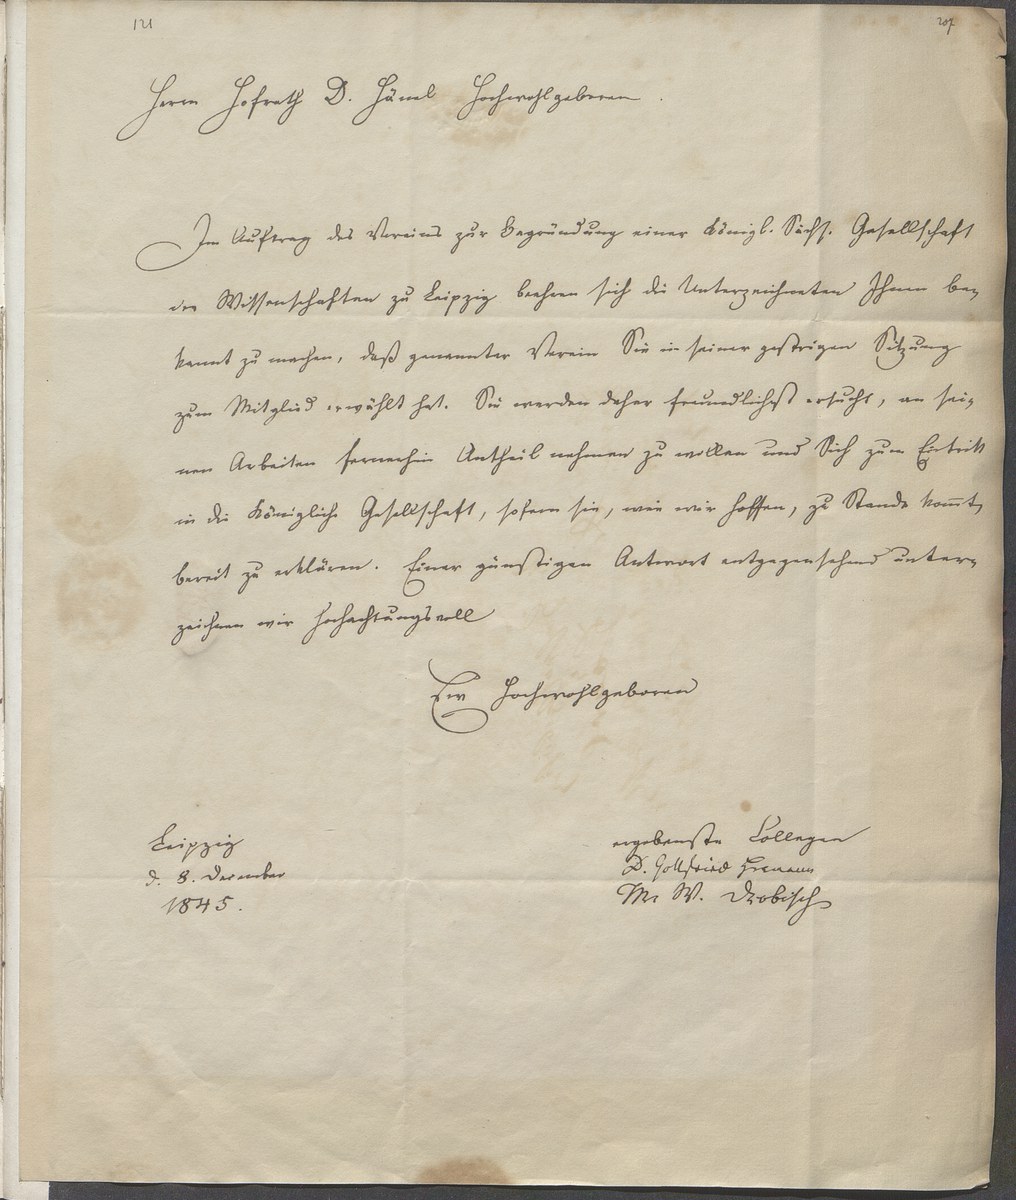 121
207
Herrn Hofrath D. Hänel Hochwohlgeboren.
Im Auftrag des Vereins zur Begründung einer Königl. Sächs. Gesellschaft
der Wissenschaften zu Leipzig beehren sich die Unterzeichneten Ihnen be-
kannt zu machen, daß genannter Verein Sie in seiner gestrigen Sitzung
zum Mitglied erwählt hat. Sie werden daher freundlichst ersucht, an sei-
nen Arbeiten fernerhin Antheil nehmen zu wollen und Sich zum Eintritt
in die Königliche Gesellschaft, sofern sie, wie wir hoffen, zu Stande kommt,
bereit zu erklären. Einer günstigen Antwort entgegensehend unter-
zeichnen wir hochachtungsvoll
Ew Hochwohlgeboren
Leipzig
d. 8. December
1845.
ergebenste Collegen
D. Gottfried Hermann
M. W. Drobisch